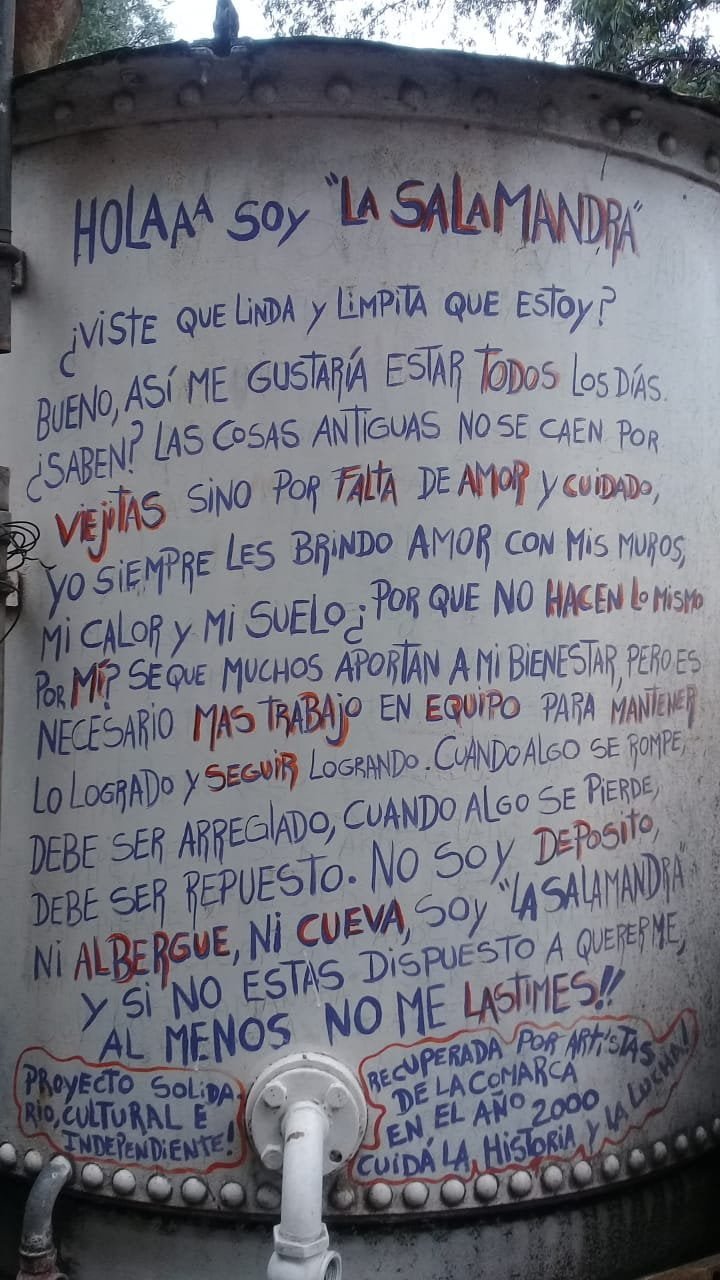 HOLAAA SOY "LA SALAMANDRA"
¿VISTE QUE LINDA Y LIMPITA QUE ESTOY?
BUENO, ASÍ ME GUSTARÍA ESTAR TODOS LOS DÍAS.
¿SABEN? LAS COSAS ANTIGUAS NO SE CAEN POR
VIEJITAS SINO POR FALTA DE AMOR Y CUIDADO,
YO SIEMPRE LES BRINDO AMOR CON MIS MUROS,
MI CALOR Y MI SUELO ¿POR QUE NO HACEN LO MISMO
POR MÍ? SE QUE MUCHOS APORTAN A MI BIENESTAR, PERO ES
NECESARIO MAS TRABAJO EN EQUIPO PARA MANTENER
LO LOGRADO Y SEGUIR LOGRANDO. CUANDO ALGO SE ROMPE,
DEBE SER ARREGLADO, CUANDO ALGO SE PIERDE,
DEBE SER REPUESTO. NO SOY DEPOSITO,
NI ALBERGUE, NI CUEVA, SOY "LA SALAMANDRA"
Y SI NO ESTAS DISPUESTO A QUERERME,
AL MENOS NO ME LASTIMES!!
PROYECTO SOLIDA-
RIO, CULTURAL E
INDEPENDIENTE!
RECUPERADA POR ARTISTAS
DE LA COMARCA
EN EL AÑO 2000
CUIDÁ LA HISTORIA Y LA LUCHA!